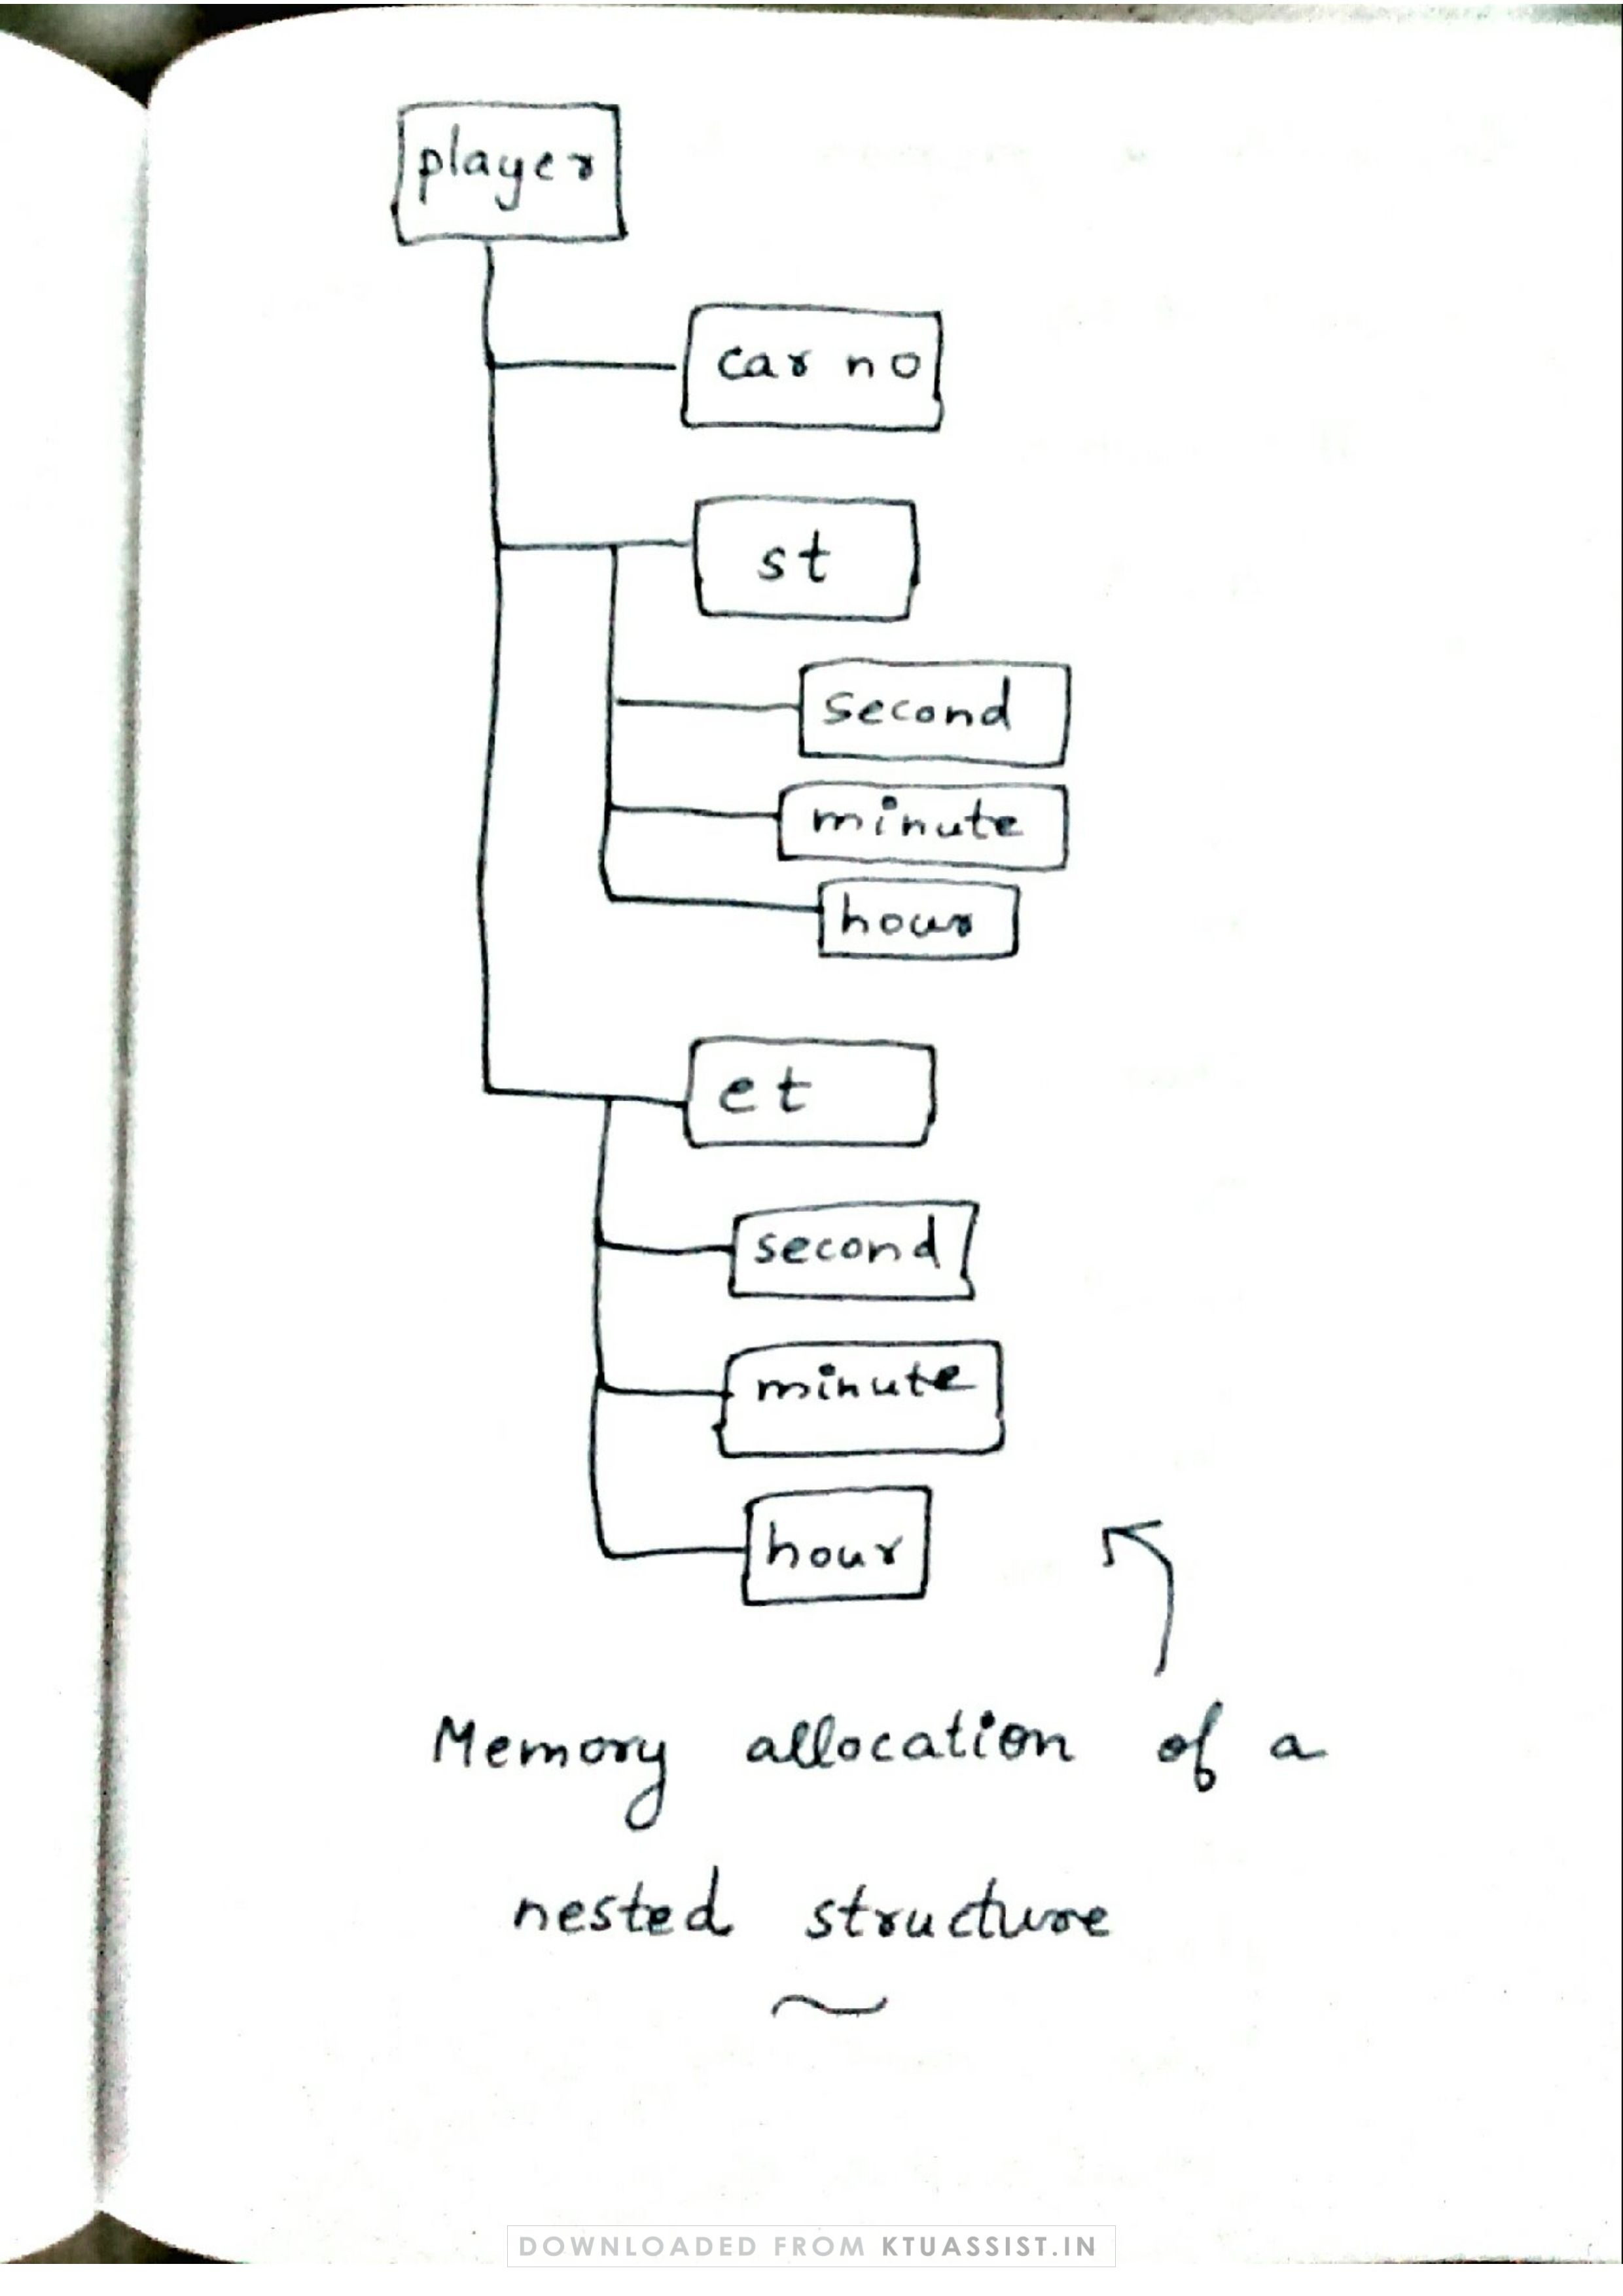 player
car no
st
second
minute
hour
et
second
minute
hour
Memory allocation of a
nested structure
DOWNLOADED FROM KTUASSIST.IN